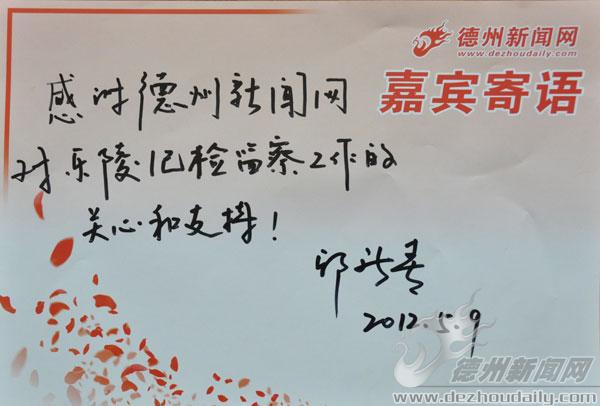 德州新闻网
www.dezhoudaily.com
嘉宾寄语
感谢德州新闻网
对乐陵纪检监察工作的
关心和支持!
2012.5.9
德州新闻网
www.dezhoudaily.com